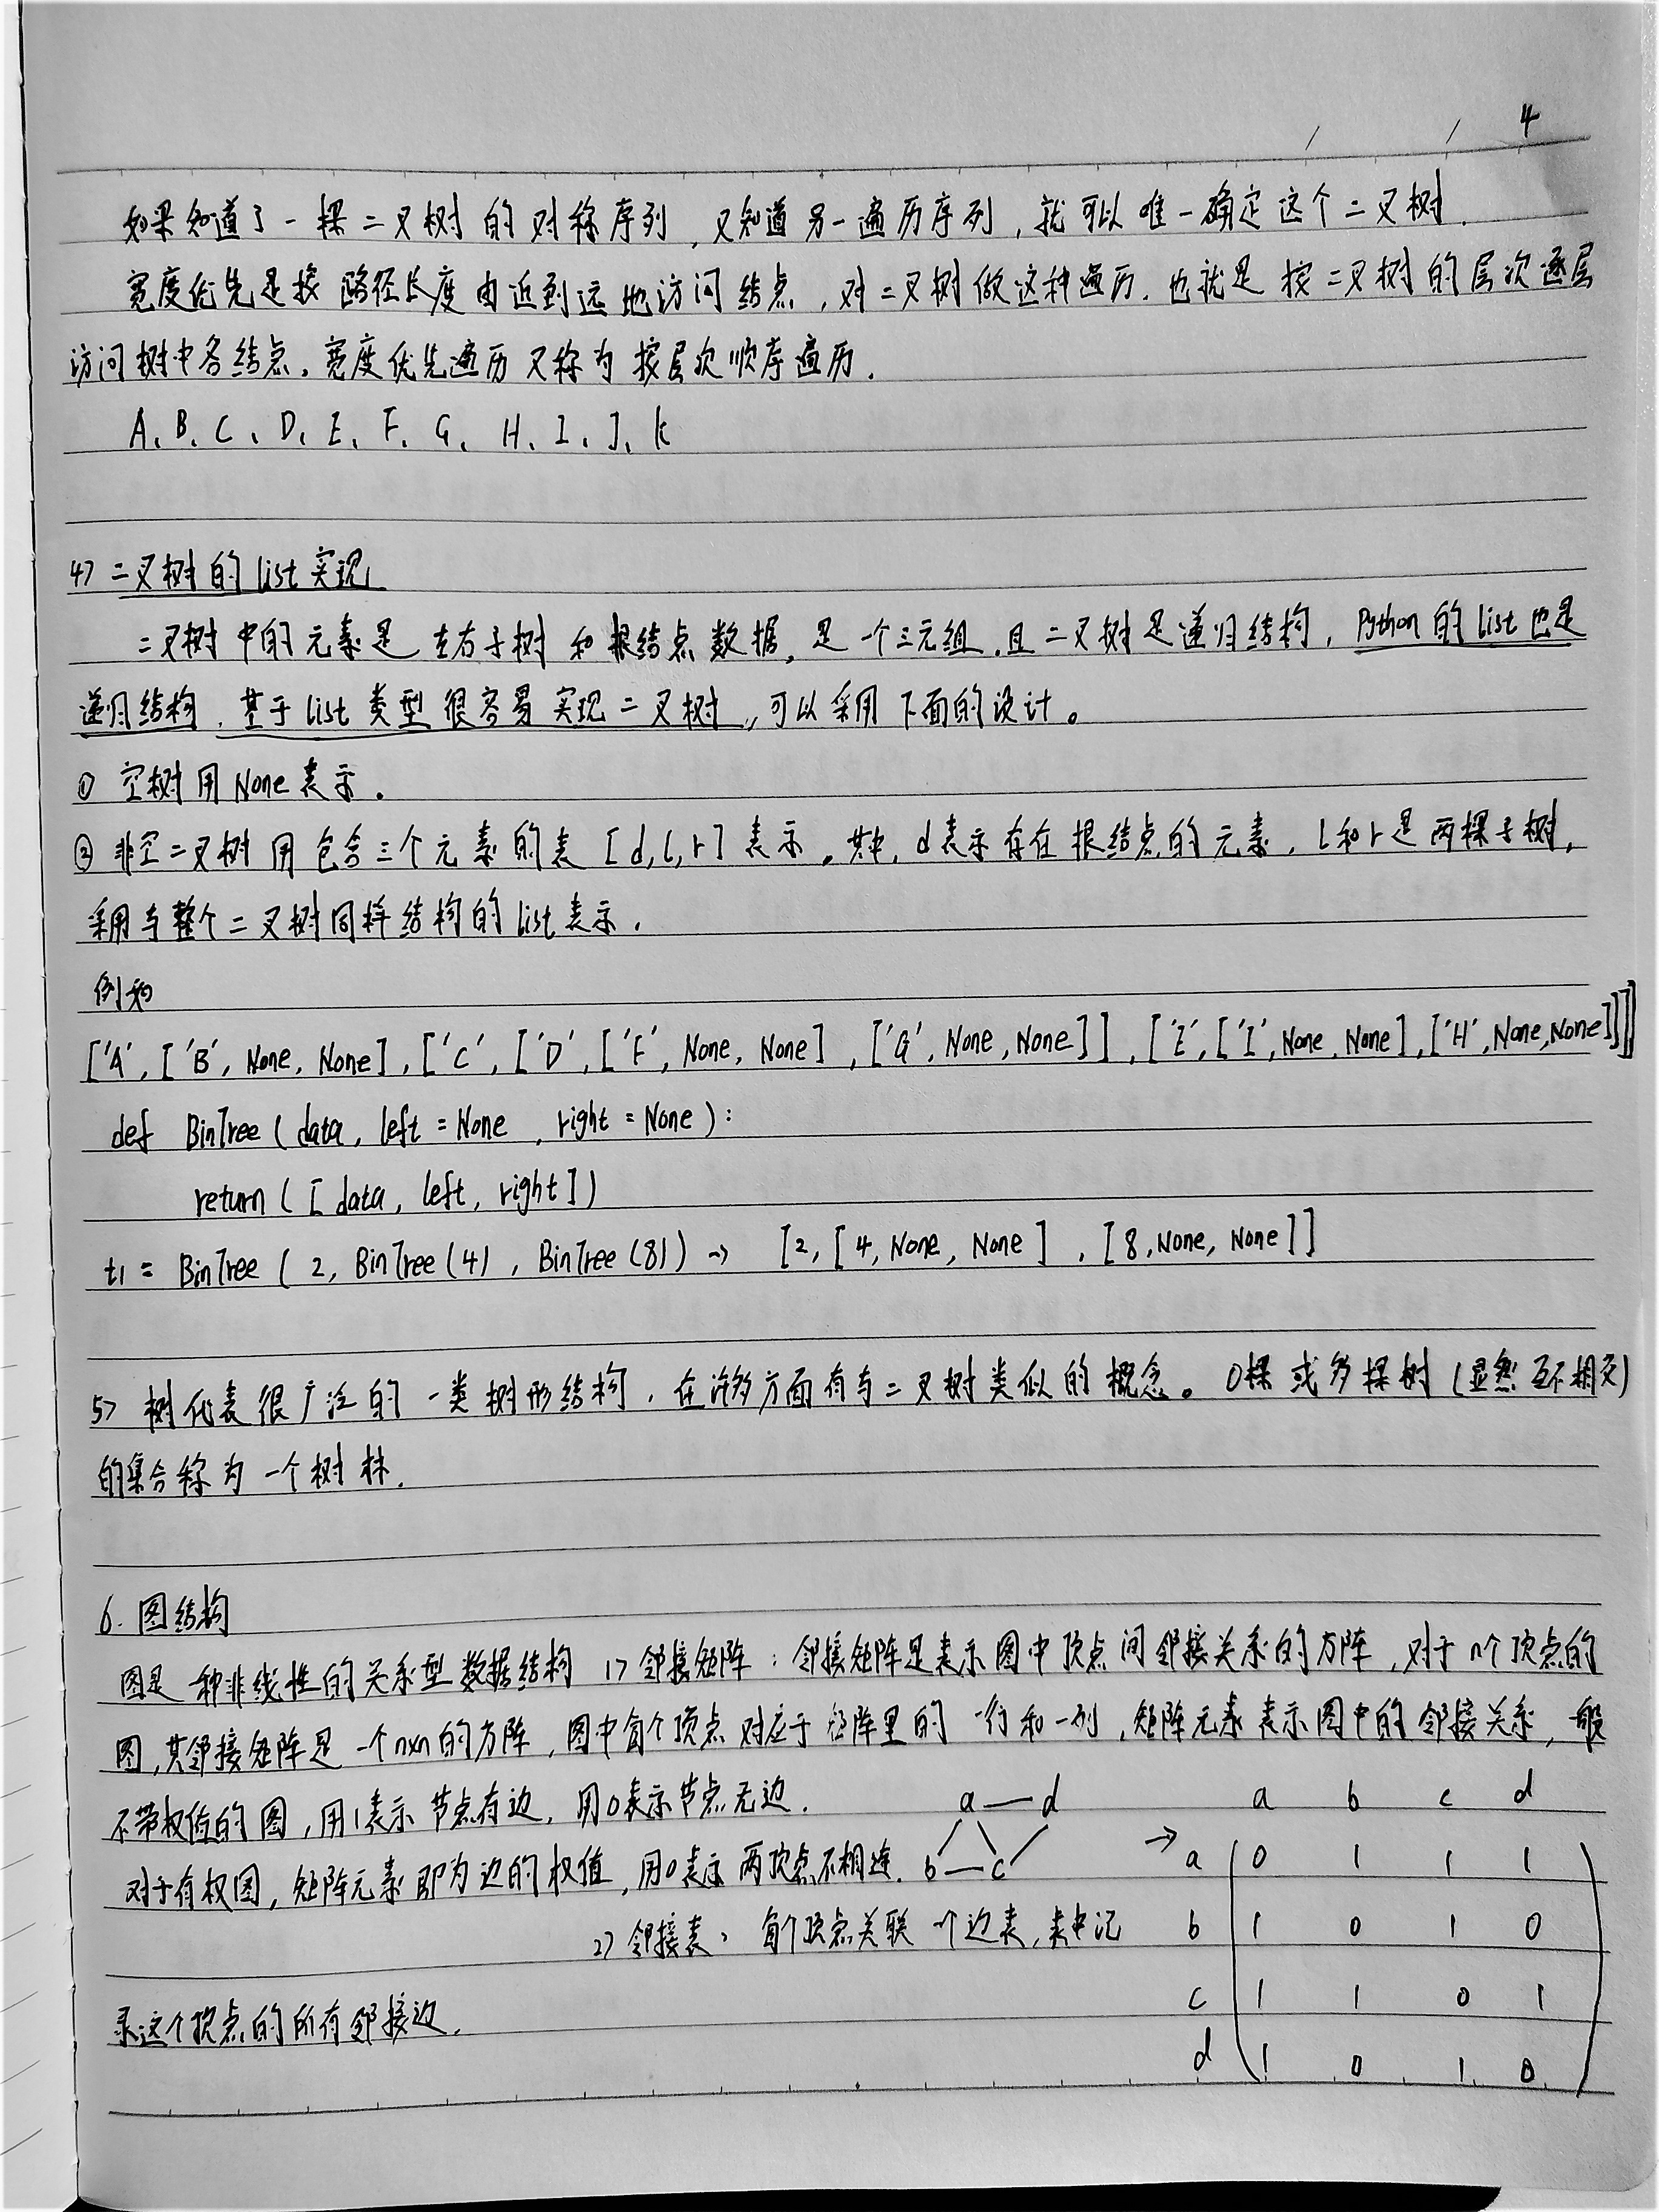 4
如果知道了一棵二叉树的对称序列,又知道另一遍历序列,就可以唯一确定这个二叉树.
宽度优先是按路径长度由近到远地访问结点,对二叉树做这种遍历.也就是按二叉树的层次逐层
访问树中各结点.宽度优先遍历又称为按层次顺序遍历.
A、B、C、D、E、F、G、H、I、J、K
4> 二叉树的list实现
二叉树中的元素是左右子树和根结点数据,是一个三元组.且二叉树是递归结构,Python的list也是
递归结构,基于list类型很容易实现二叉树,可以采用下面的设计。
① 空树用None表示.
② 非空二叉树用包含三个元素的表[d,l,r]表示.其中,d表示存在根结点的元素,l和r是两棵子树,
采用与整个二叉树同样结构的list表示.
例如
['A',['B',None,None],['C',['D',['F',None,None],['G',None,None]],['E',['I',None,None],['H',None,None]]]]
def BinTree(data, left=None, right=None):
return([data, left, right])
t1 = BinTree(2, BinTree(4), BinTree(8)) → [2,[4,None,None],[8,None,None]]
5> 树代表很广泛的一类树形结构,在许多方面有与二叉树类似的概念。0棵或多棵树(显然互不相交)
的集合称为一个树林.
6. 图结构
图是一种非线性的关系型数据结构 1> 邻接矩阵:邻接矩阵是表示图中顶点间邻接关系的方阵,对于n个顶点的
图,其邻接矩阵是一个n×n的方阵,图中每个顶点对应于矩阵里的一行和一列,矩阵元素表示图中的邻接关系,一般
不带权值的图,用1表示节点有边,用0表示节点无边. a—d a b c d
对于有权图,矩阵元素即为边的权值,用0表示两顶点不相连. b—c → a 0 1 1 1
2> 邻接表:每个顶点关联一个边表,表中记 b 1 0 1 0
c 1 1 0 1
录这个顶点的所有邻接边.
d 1 0 1 0